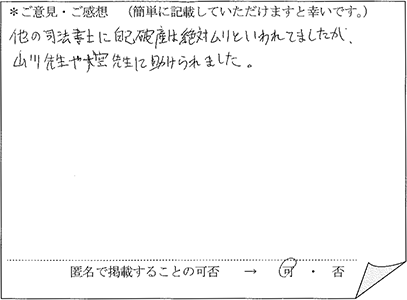 *ご意見・ご感想 (簡単に記載していただけますと幸いです。)
他の司法書士に自己破産は絶対ムリといわれてましたが、
山川先生や大宮先生に助けられました。
匿名で掲載することの可否 → 可 ・ 否